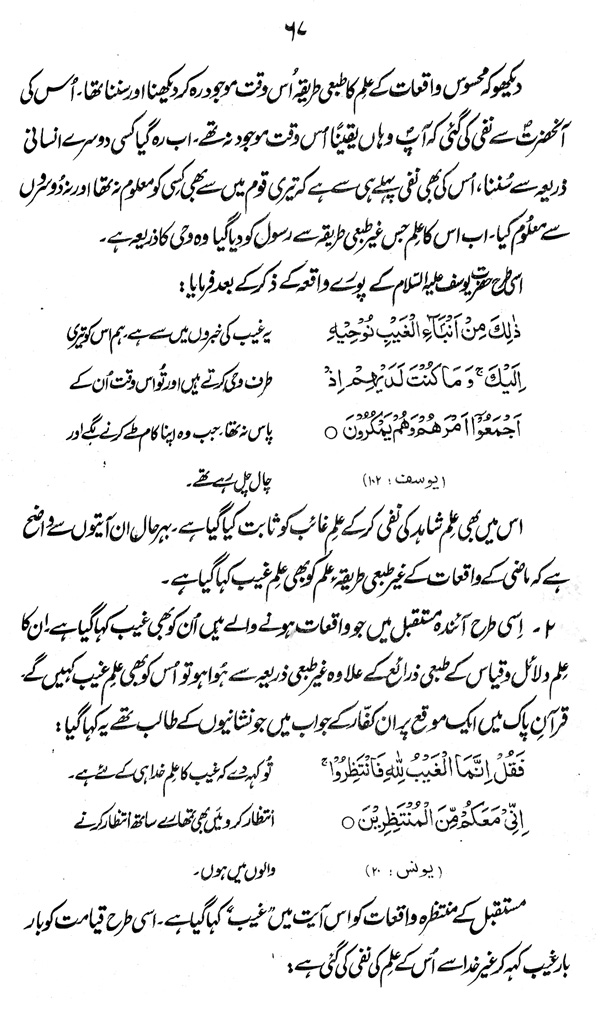 ۶۷
دیکھو کہ محسوس واقعات کے علم کا طبعی طریقہ اُس وقت موجود رہ کر دیکھنا اور سننا تھا۔ اُس کی
آنحضرتؐ سے نفی کی گئی کہ آپؐ وہاں یقیناً اُس وقت موجود نہ تھے۔ اب رہ گیا کسی دوسرے انسانی
ذریعہ سے سُننا، اُس کی بھی نفی پہلے ہی سے ہے کہ تیری قوم میں سے بھی کسی کو معلوم نہ تھا اور نہ دُوسروں
سے معلُوم کیا۔ اب اس کا علِم جس غیر طبعی طریقہ سے رسول کو دیا گیا وہ وحی کا ذریعہ ہے۔
اسی طرح حضرت یوسف علیہ السّلام کے پورے واقعہ کے ذکر کے بعد فرمایا:
ذٰلِكَ مِنْ اَنْۢبَآءِ الْغَيْبِ نُوْحِيْهِ یہ غیب کی خبروں میں سے ہے، ہم اس کو تیری
اِلَيْكَ ۚ وَمَا كُنْتَ لَدَيْهِمْ اِذْ طرف وحی کرتے ہیں اور تُو اس وقت اُن کے
اَجْمَعُوْٓا اَمْرَهُمْ وَهُمْ يَمْكُرُوْنَ ○ پاس نہ تھا، جب وہ اپنا کام طے کرنے لگے اور
(یوسف: ۱۰۲) چال چل رہے تھے۔
اس میں بھی علِم شاہد کی نفی کر کے علِم غائب کو ثابت کیا گیا ہے۔ بہر حال ان آیتوں سے واضح
ہے کہ ماضی کے واقعات کے غیر طبعی طریقۂ علم کو بھی علمِ غیب کہا گیا ہے۔
۲۔ اِسی طرح آئندہ مستقبل میں جو واقعات ہونے والے ہیں اُن کو بھی غیب کہا گیا ہے، اِن کا
علِم دلائل و قیاس کے طبعی ذرائع کے علاوہ غیر طبعی ذریعہ سے ہُوا ہو تو اُس کو بھی علِم غیب کہیں گے
قرآنِ پاک میں ایک موقع پر ان کفّار کے جواب میں جو نشانیوں کے طالب تھے یہ کہا گیا:
فَقُلْ اِنَّمَا الْغَيْبُ لِلّٰهِ فَانْتَظِرُوْا ۚ تُو کہہ دے کہ غیب کا علِم خدا ہی کے لئے ہے۔
اِنِّيْ مَعَكُمْ مِّنَ الْمُنْتَظِرِيْنَ ○ انتظار کرو میں بھی تمھارے ساتھ انتظار کرنے
(یونس: ۲۰) والوں میں ہوں۔
مستقبل کے منتظرہ واقعات کو اس آیت میں ”غیب“ کہا گیا ہے۔ اسی طرح قیامت کو بار
بار غیب کہہ کر غیرِ خدا سے اُس کے علم کی نفی کی گئی ہے: